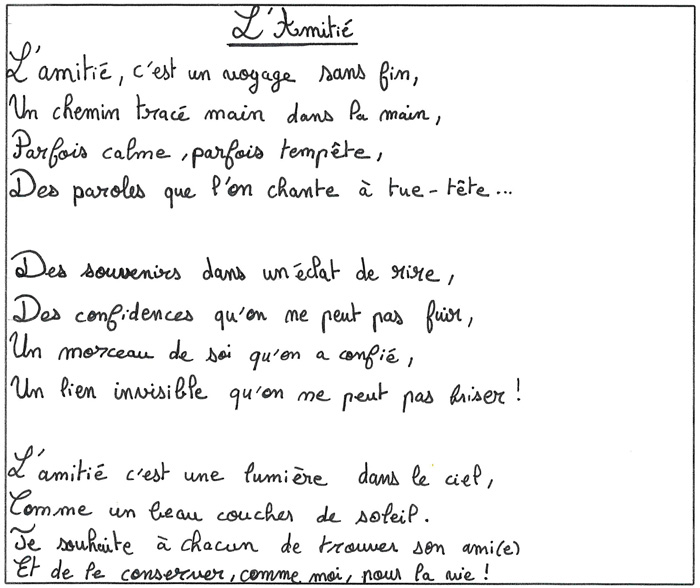 L'Amitié
L'amitié, c'est un voyage sans fin,
Un chemin tracé main dans la main,
Parfois calme, parfois tempête,
Des paroles que l'on chante à tue-tête...
Des souvenirs dans un éclat de rire,
Des confidences qu'on ne peut pas fuir,
Un morceau de soi qu'on a confié,
Un lien invisible qu'on ne peut pas briser !
L'amitié c'est une lumière dans le ciel,
Comme un beau coucher de soleil.
Je souhaite à chacun de trouver son ami(e)
Et de le conserver, comme moi, pour la vie !